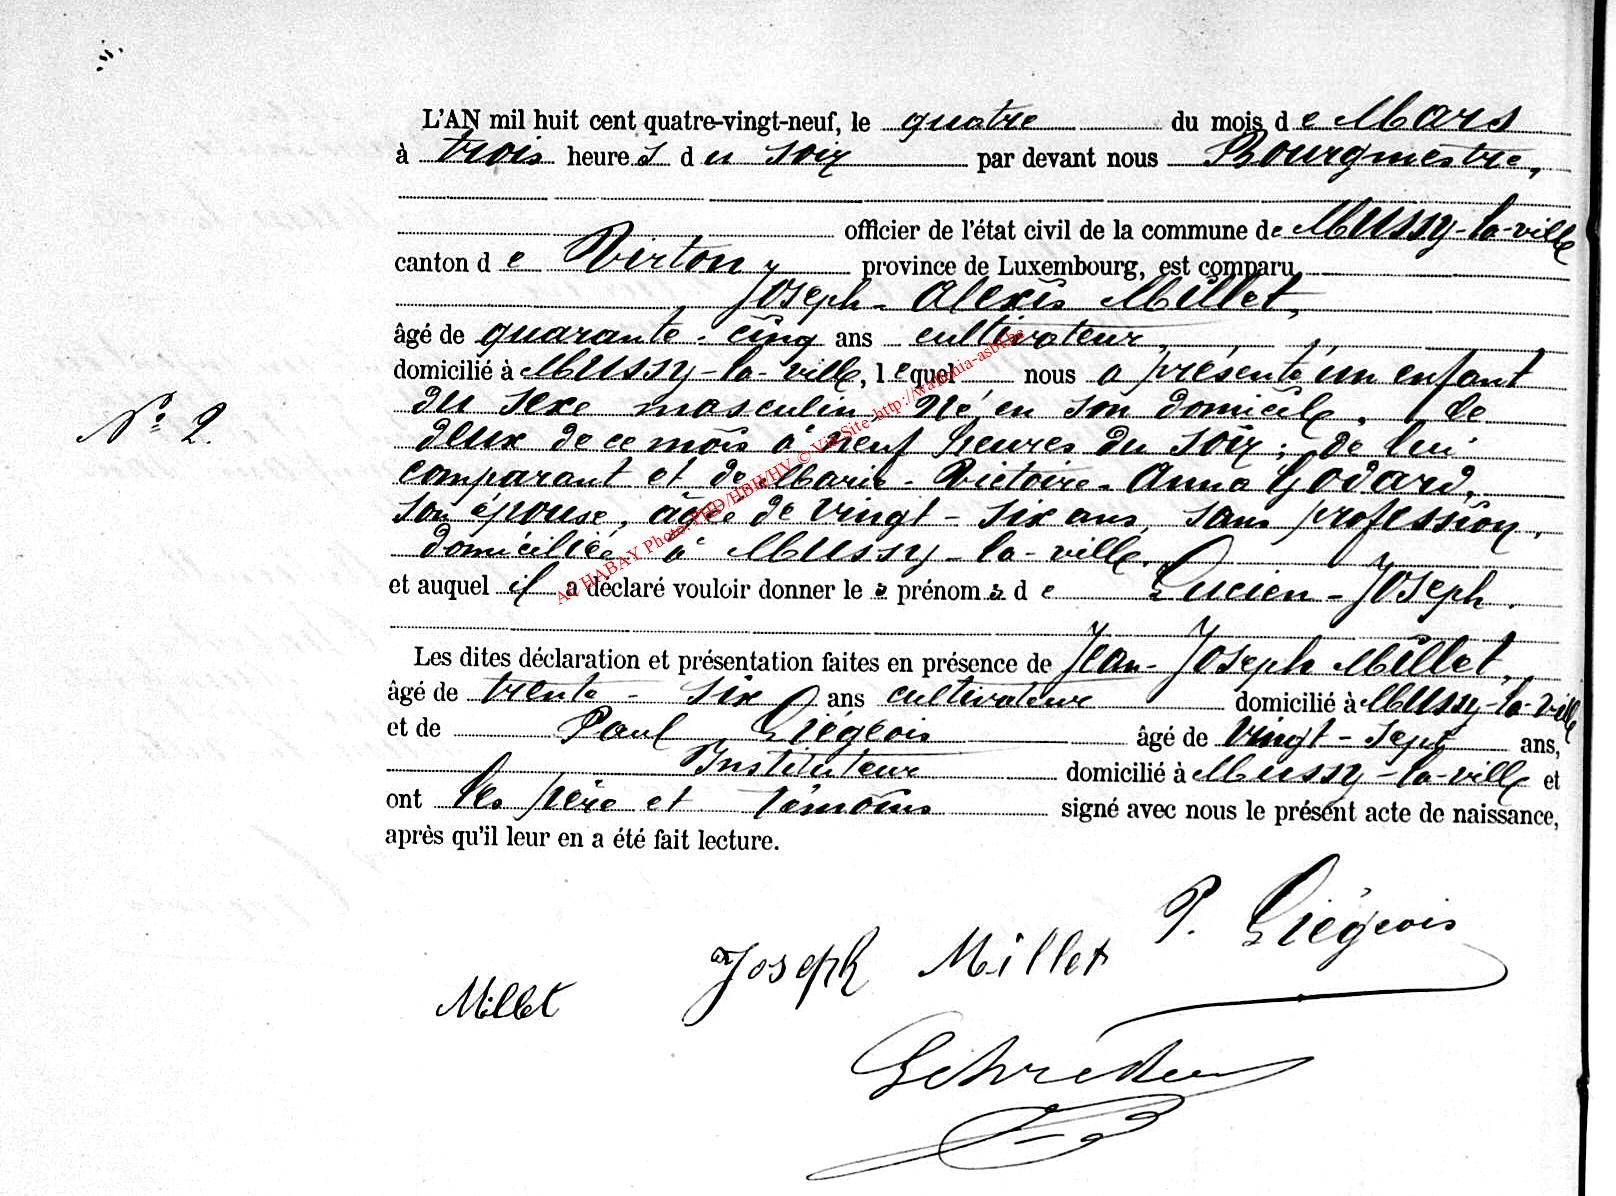 L'AN mil huit cent quatre-vingt-neuf, le quatre du mois de Mars
à trois heures du soir par devant nous Bourgmestre,
officier de l'état civil de la commune de Mussy-la-ville
canton de Virton, province de Luxembourg, est comparu
Joseph-Alexis Millet,
âgé de quarante-cinq ans cultivateur,
domicilié à Mussy-la-ville, lequel nous a présenté un enfant
du sexe masculin, né, en son domicile, le
N° 2.
deux de ce mois à neuf heures du soir; de lui
comparant et de Marie-Victoire-Anna Godard,
son épouse, âgée de vingt-six ans, sans profession,
domiciliée à Mussy-la-ville,
et auquel il a déclaré vouloir donner les prénoms de Lucien-Joseph.
Les dites déclaration et présentation faites en présence de Jean-Joseph Millet,
âgé de trente-six ans cultivateur domicilié à Mussy-la-ville
et de Paul Liégeois âgé de vingt-sept ans,
Instituteur domicilié à Mussy-la-ville et
ont les père et témoins signé avec nous le présent acte de naissance,
après qu'il leur en a été fait lecture.
P. Liégeois
Joseph Millet
Millet
AC HABAY Photo: PHD/HBH/HV © Via Site http://wallonia-asbl.be